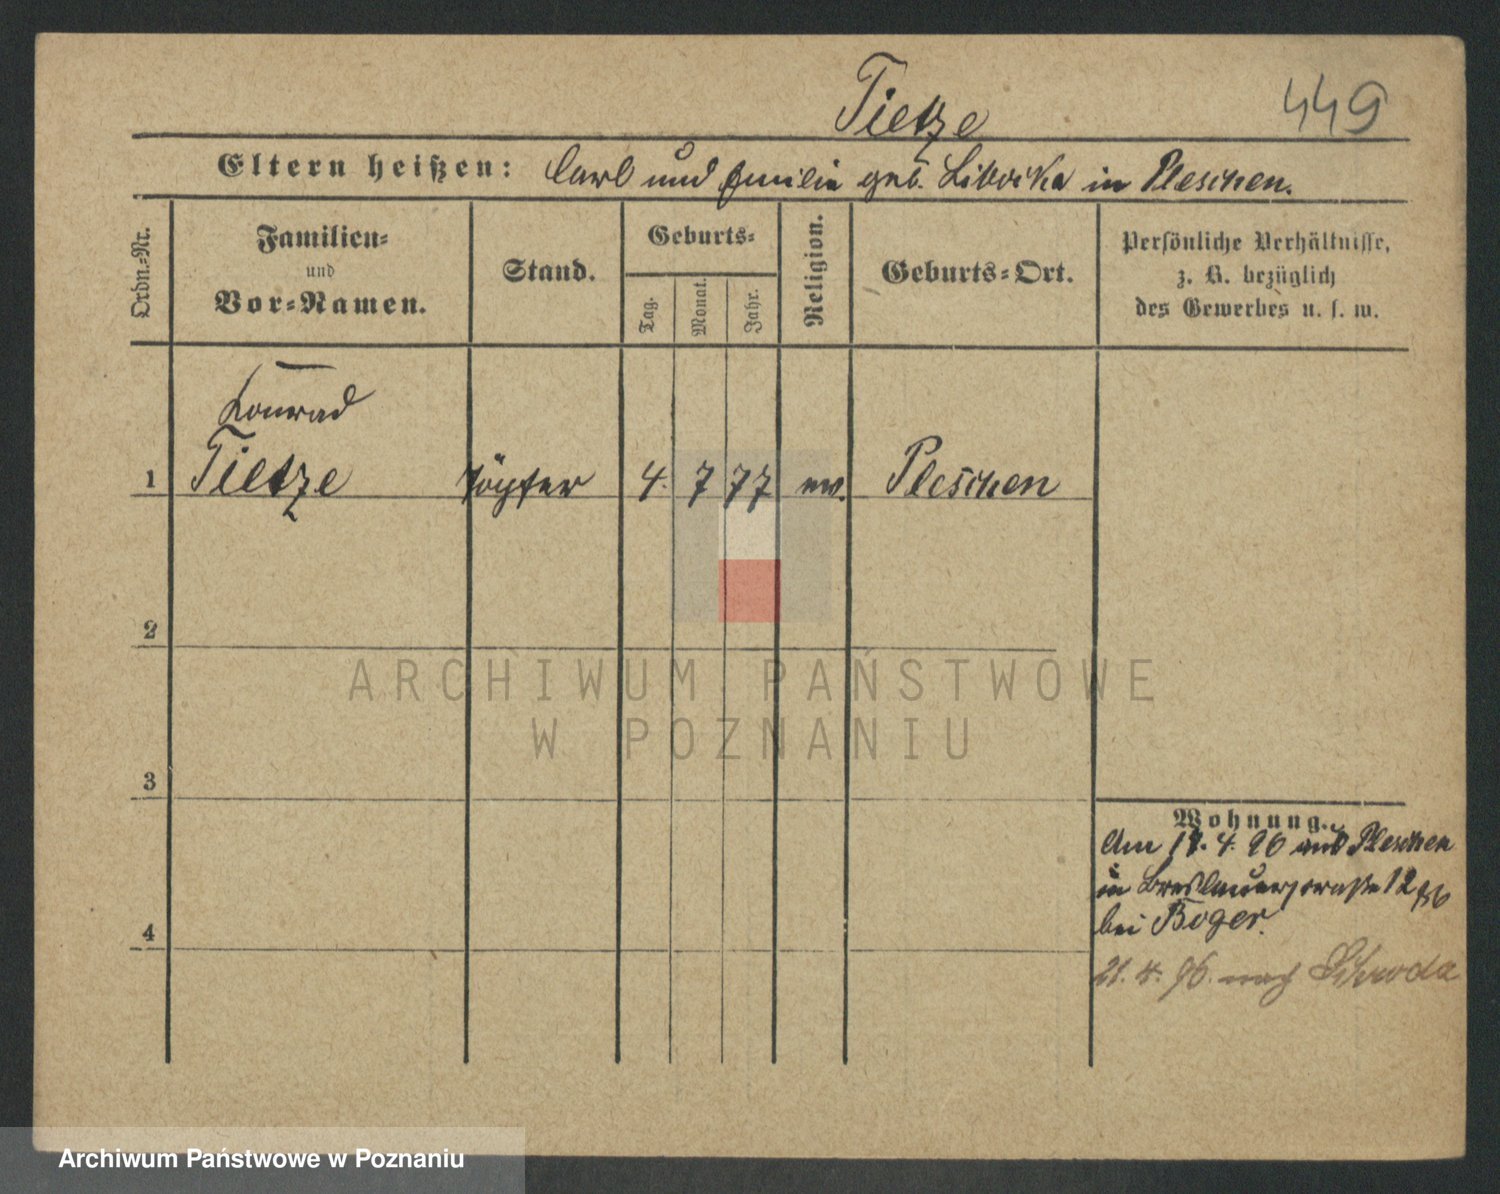 Tietze
449
Eltern heißen: Carl und Emilie geb. Liborka in Pleschen.
Ordn.-Nr.
Familien-
und
Vor-Namen.
Stand.
Geburts-
Tag.
Monat.
Jahr.
Religion.
Geburts-Ort.
Persönliche Verhältnisse,
z. B. bezüglich
des Gewerbes u. s. w.
Konrad
1 Tietze Töpfer 4. 7 77 ev. Pleschen
2
3
4
Wohnung.
Am 17. 4. 96 aus Pleschen
in Breslauerstraße 12
bei Boger.
21. 4. 96. nach Schroda
ARCHIWUM PAŃSTWOWE
W POZNANIU
Archiwum Państwowe w Poznaniu